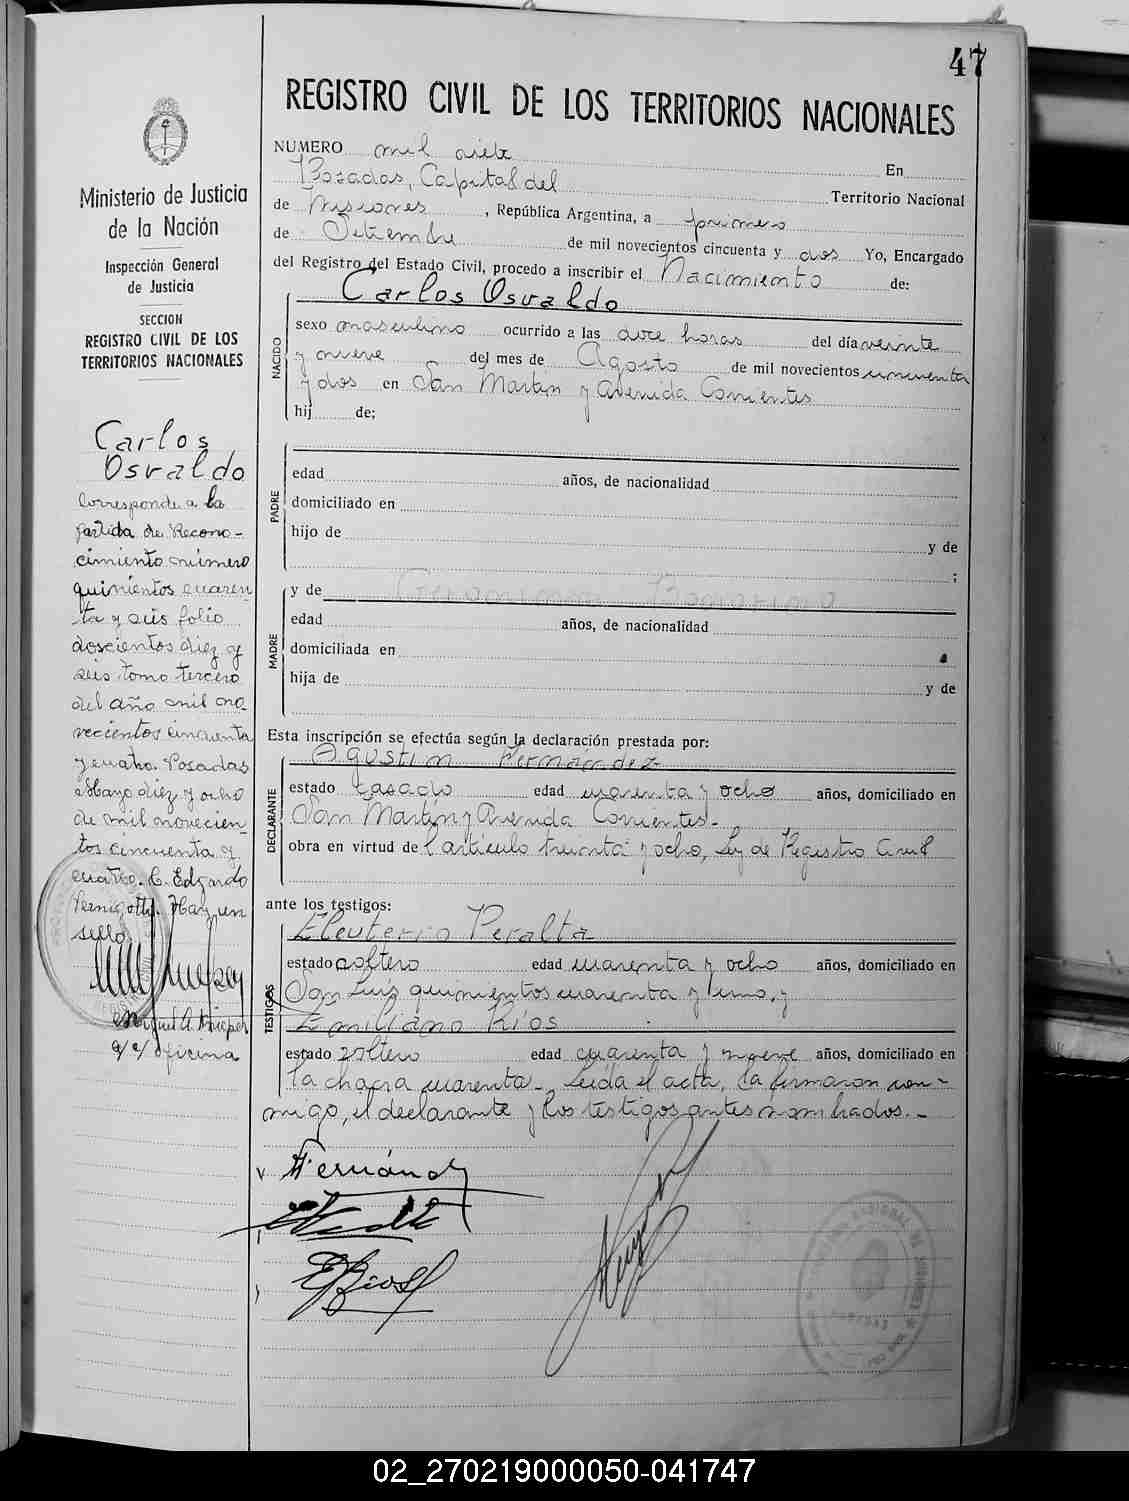 47
REGISTRO CIVIL DE LOS TERRITORIOS NACIONALES
Ministerio de Justicia
de la Nación
Inspección General
de Justicia
SECCION
REGISTRO CIVIL DE LOS
TERRITORIOS NACIONALES
Carlos
Osvaldo
Corresponde a la
partida de Recono-
cimiento número
quinientos cuaren
ta y seis folio
doscientos diez y
seis tomo tercero
del año mil no
vecientos cincuenta
y cuatro. Posadas
Mayo diez y ocho
de mil novecien-
tos cincuenta y
cuatro. C. Edgardo
Hay un
sello
Miguel A.
a/c/ oficina
NUMERO mil siete En
Posadas, Capital del Territorio Nacional
de Misiones, República Argentina, a primero
de Setiembre de mil novecientos cincuenta y dos Yo, Encargado
del Registro del Estado Civil, procedo a inscribir el Nacimiento de:
NACIDO
Carlos Osvaldo
sexo masculino ocurrido a las doce horas del día veinte
y nueve del mes de Agosto de mil novecientos cincuenta
y dos en San Martin y Avenida Corrientes
hij de;
PADRE
edad años, de nacionalidad
domiciliado en
hijo de y de
;
MADRE
y de
edad años, de nacionalidad
domiciliada en
hija de y de
Esta inscripción se efectúa según la declaración prestada por:
DECLARANTE
Agustin Fernández
estado casado edad cuarenta y ocho años, domiciliado en
San Martin y Avenida Corrientes.-
obra en virtud de l'artículo treinta y ocho, Ley de Registro Civil
ante los testigos:
TESTIGOS
Eleuterio Peralta
estado soltero edad cuarenta y ocho años, domiciliado en
San Luis quinientos cuarenta y uno, y
Emiliano Rios
estado soltero edad cuarenta y nueve años, domiciliado en
la chacra cuarenta.- Leída el acta, la firmaron con-
migo, el declarante y los testigos antes nombrados.-
Fernández
ERios
02_270219000050-041747